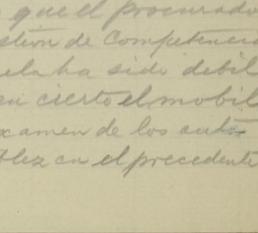 que el procurado
stión de competencia
ela ha sido debil
en cierto el mobil
xamen de los auto
en el precedente